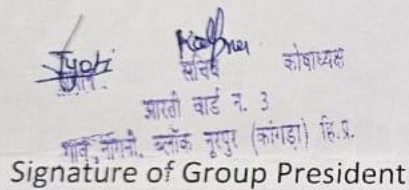 Jyoti
सचिव कोषाध्यक्ष
आरती वार्ड न. 3
नागनी, ब्लॉक नूरपुर (कांगड़ा) हि.प्र.
Signature of Group President